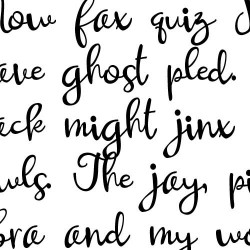 low fax quiz
ave ghost pled.
ack might jinx
wls. The jay, pi
bra and my wo